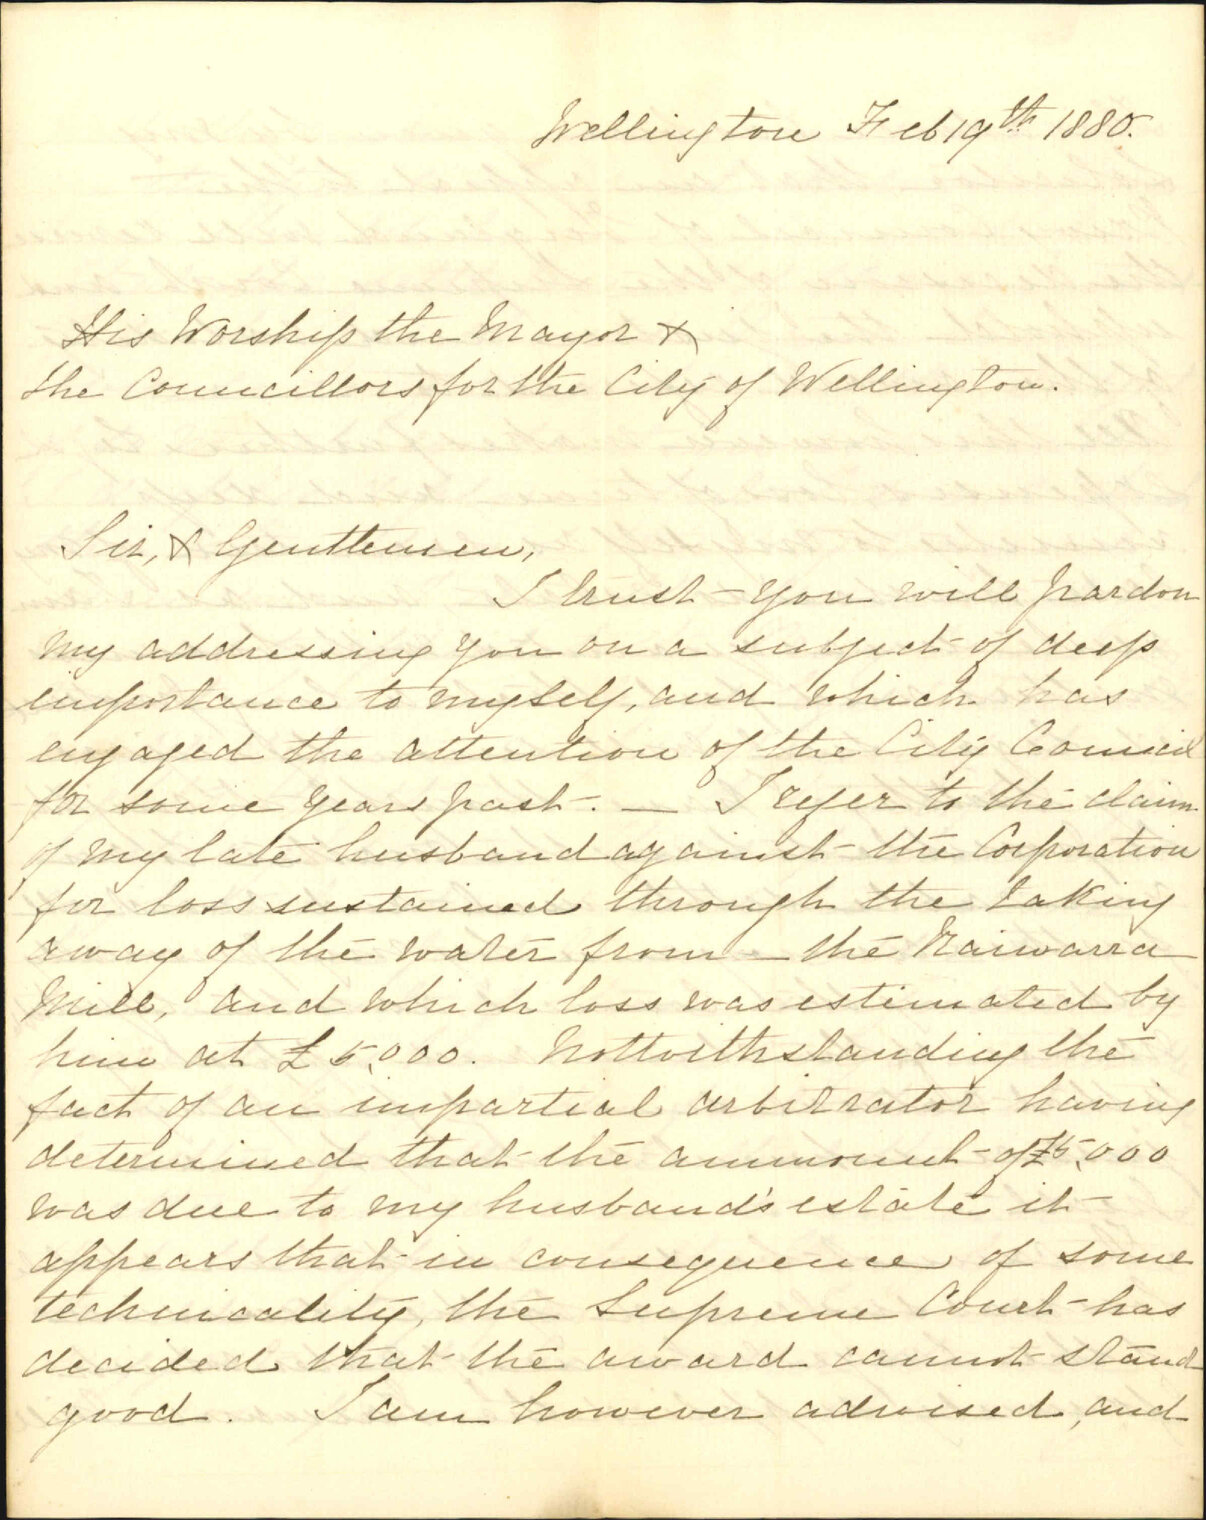 Wellington Feb 19th 1880.
His Worship the Mayor &
the Councillors for the City of Wellington.
Sir, & Gentlemen,
I trust you will pardon
my addressing you on a subject of deep
importance to myself, and which has
engaged the attention of the City Council
for some years past. — I refer to the claim
of my late husband against the Corporation
for loss sustained through the taking
away of the water from the Kaiwarra
Mill, and which loss was estimated by
him at £5,000. Nottwithstanding the
fact of an impartial arbitrator having
determined that the ammount of £5,000
was due to my husband's estate it
appears that in consequence of some
technicality, the Supreme Court has
decided that the award cannot stand
good. I am however advised, and